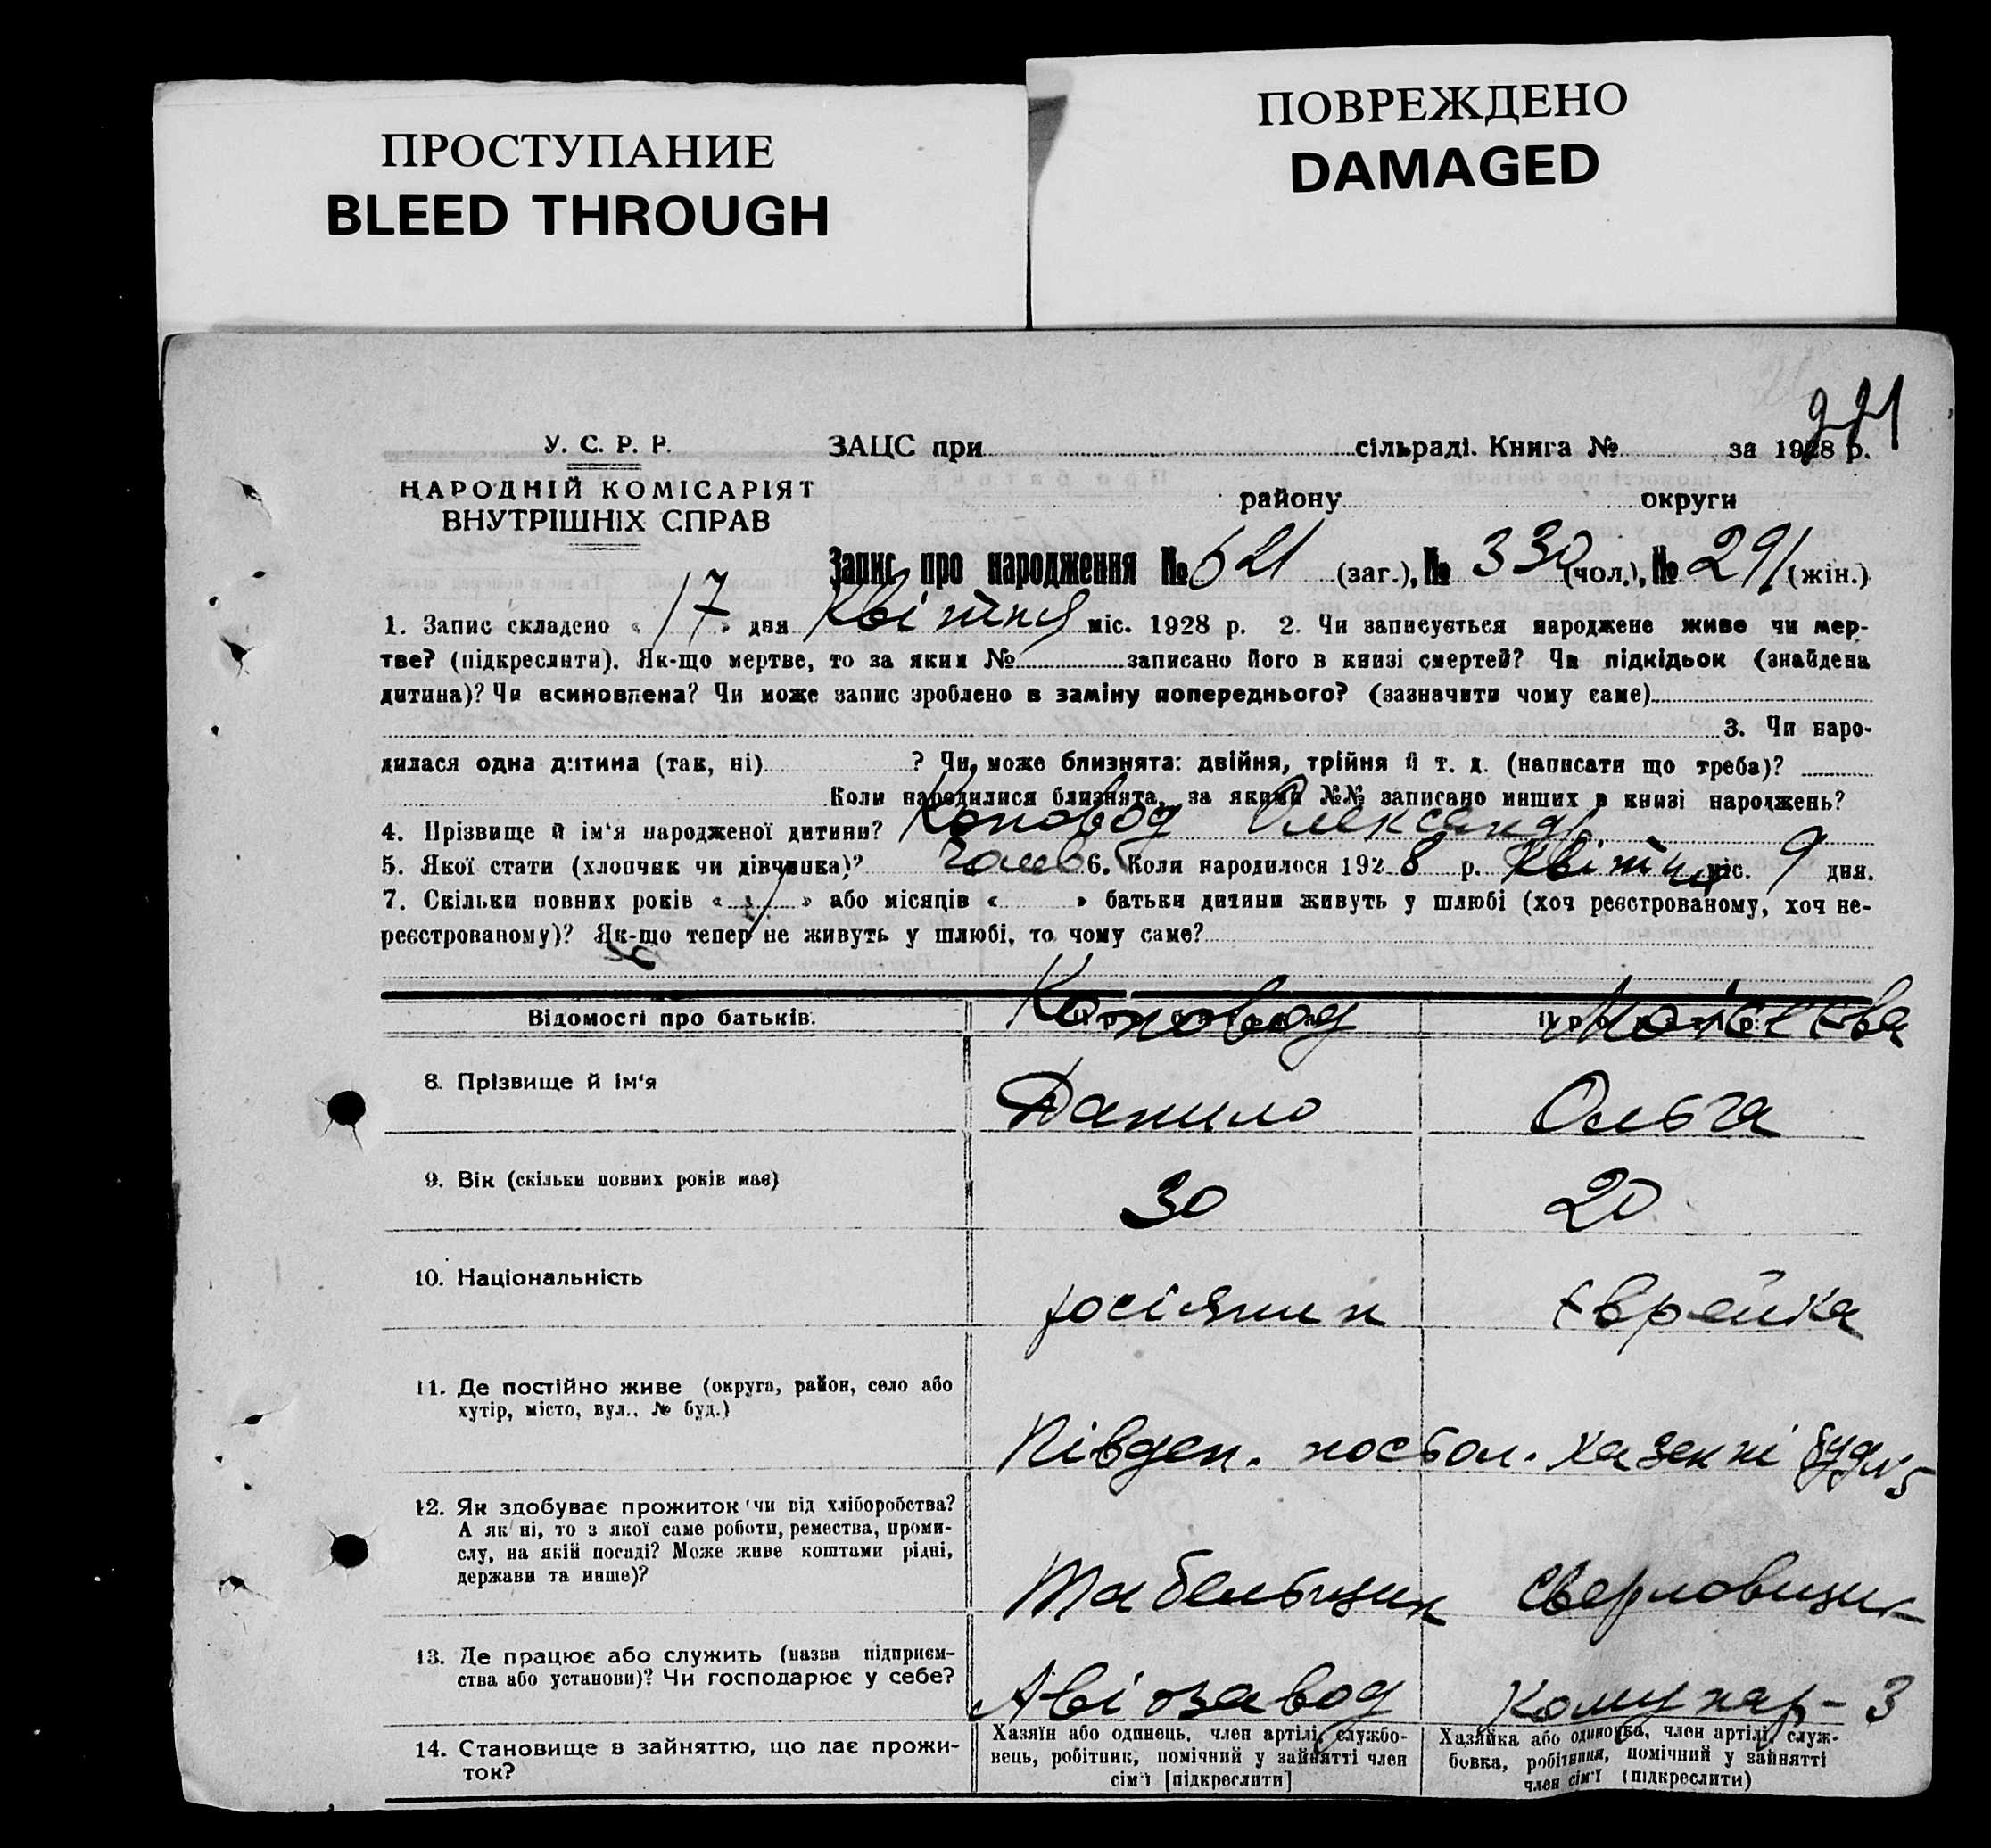 ПРОСТУПАНИЕ
BLEED THROUGH
ПОВРЕЖДЕНО
DAMAGED
У. С. Р. Р.
НАРОДНІЙ КОМІСАРІЯТ
ВНУТРІШНІХ СПРАВ
ЗАЦС при сільраді. Книга № за 1928 р.
району округи
Запис про народження № 621 (заг.), № 330 (чол.), № 291 (жін.)
1. Запис складено « 17 » дня Квітня міс. 1928 р. 2. Чи записується народжене живе чи мер-
тве? (підкреслити). Як-що мертве, то за яким № записано його в книзі смертей? Чи підкідьок (знайдена
дитина)? Чи всиновлена? Чи може запис зроблено в заміну попереднього? (зазначити чому саме)
3. Чи наро-
дилася одна дитина (так, ні) ? Чи може близнята: двійня, трійня й т. д. (написати що треба)?
Коли народилися близнята, за якими №№ записано инших в книзі народжень?
4. Прізвище й ім'я народженої дитини? Коновод Олександр
5. Якої стати (хлопчик чи дівчинка)? 6. Коли народилося 1928 р. Квітня міс. 9 дня.
7. Скільки повних років « 1 » або місяців « » батьки дитини живуть у шлюбі (хоч реєстрованому, хоч не-
реєстрованому)? Як-що тепер не живуть у шлюбі, то чому саме?
Відомості про батьків. Коновод
8. Прізвище й ім'я Данило Ольга
9. Вік (скільки повних років має) 30 20
10. Національність росіянин Єврейка
11. Де постійно живе (округа, район, село або
хутір, місто, вул., № буд.)
Півден. посьол. казенні буд № 5
12. Як здобуває прожиток чи від хліборобства?
А як ні, то з якої саме роботи, ремества, проми-
слу, на якій посаді? Може живе коштами рідні,
держави та инше)?
Табельщик Сверловщик
13. Де працює або служить (назва підприєм-
ства або установи)? Чи господарює у себе?
Авіозавод Комунар-3
14. Становище в зайняттю, що дає прожи-
ток?
Хазяїн або одинець, член артілі, службо-
вець, робітник, помічний у зайнятті член
сім'ї [підкреслити]
Хазяйка або одиночка, член артілі, служ-
бовка, робітниця, помічний у зайнятті
член сім'ї (підкреслити)